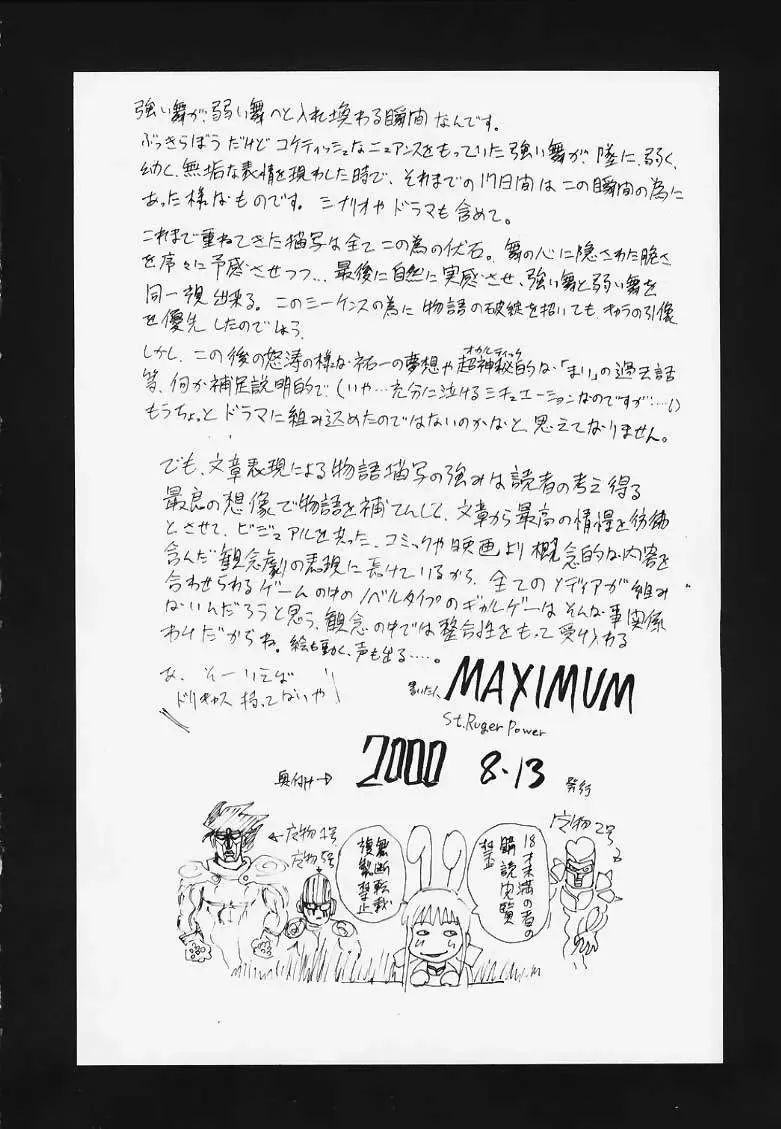 強い舞が、弱い舞へと入れ換わる瞬間なんです。
ぶっきらぼうだけどコケティッシュなニュアンスをもっていた強い舞が、弱く、
幼く、無垢な表情を現わした時で、それまでの17日間はこの瞬間の為に
あった様なものです。シナリオやドラマも含めて。
これまで重ねてきた描写は全てこの為の伏石。舞の心に隠された脆さ
を序々に予感させつつ…最後に自然に実感させ、強い舞と弱い舞を
同一視出来る。このシーケンスの為に物語の破綻を招いても、キャラの引像
を優先したのでしょう。
しかし、この後の怒涛の様な祐一の夢想や超神秘的な「まい」の過去話
オカルティック
等、何か補足説明的で(いや…充分に泣けるシチュエーションなのですが……)
もうちょっとドラマに組み込めたのではないのかなと思えてなりません。
でも、文章表現による物語描写の強みは読者の考え得る
最良の想像で物語を補てんして、文章から最高の情景を彷彿
とさせて、ビジュアルを失った、コミックや映画より概念的な内容を
含んだ観念劇の表現に長けているから、全てのメディアが組み
合わせられるゲームの中のノベルタイプのギャルゲーはそんな事関係
ないんだろうと思う、観念の中では整合性をもって受け入れる
わけだからね。絵も動く、声も出る……。
あ、そーいえば
ドリキャス持ってないや
書いた人 MAXIMUM
St.Ruger Power
奥付け→ 2000 8・13 発行
←魔物1号
魔物5号
無断転載
複製禁止
18才未満の者の
購読閲覧
禁止
魔物2号